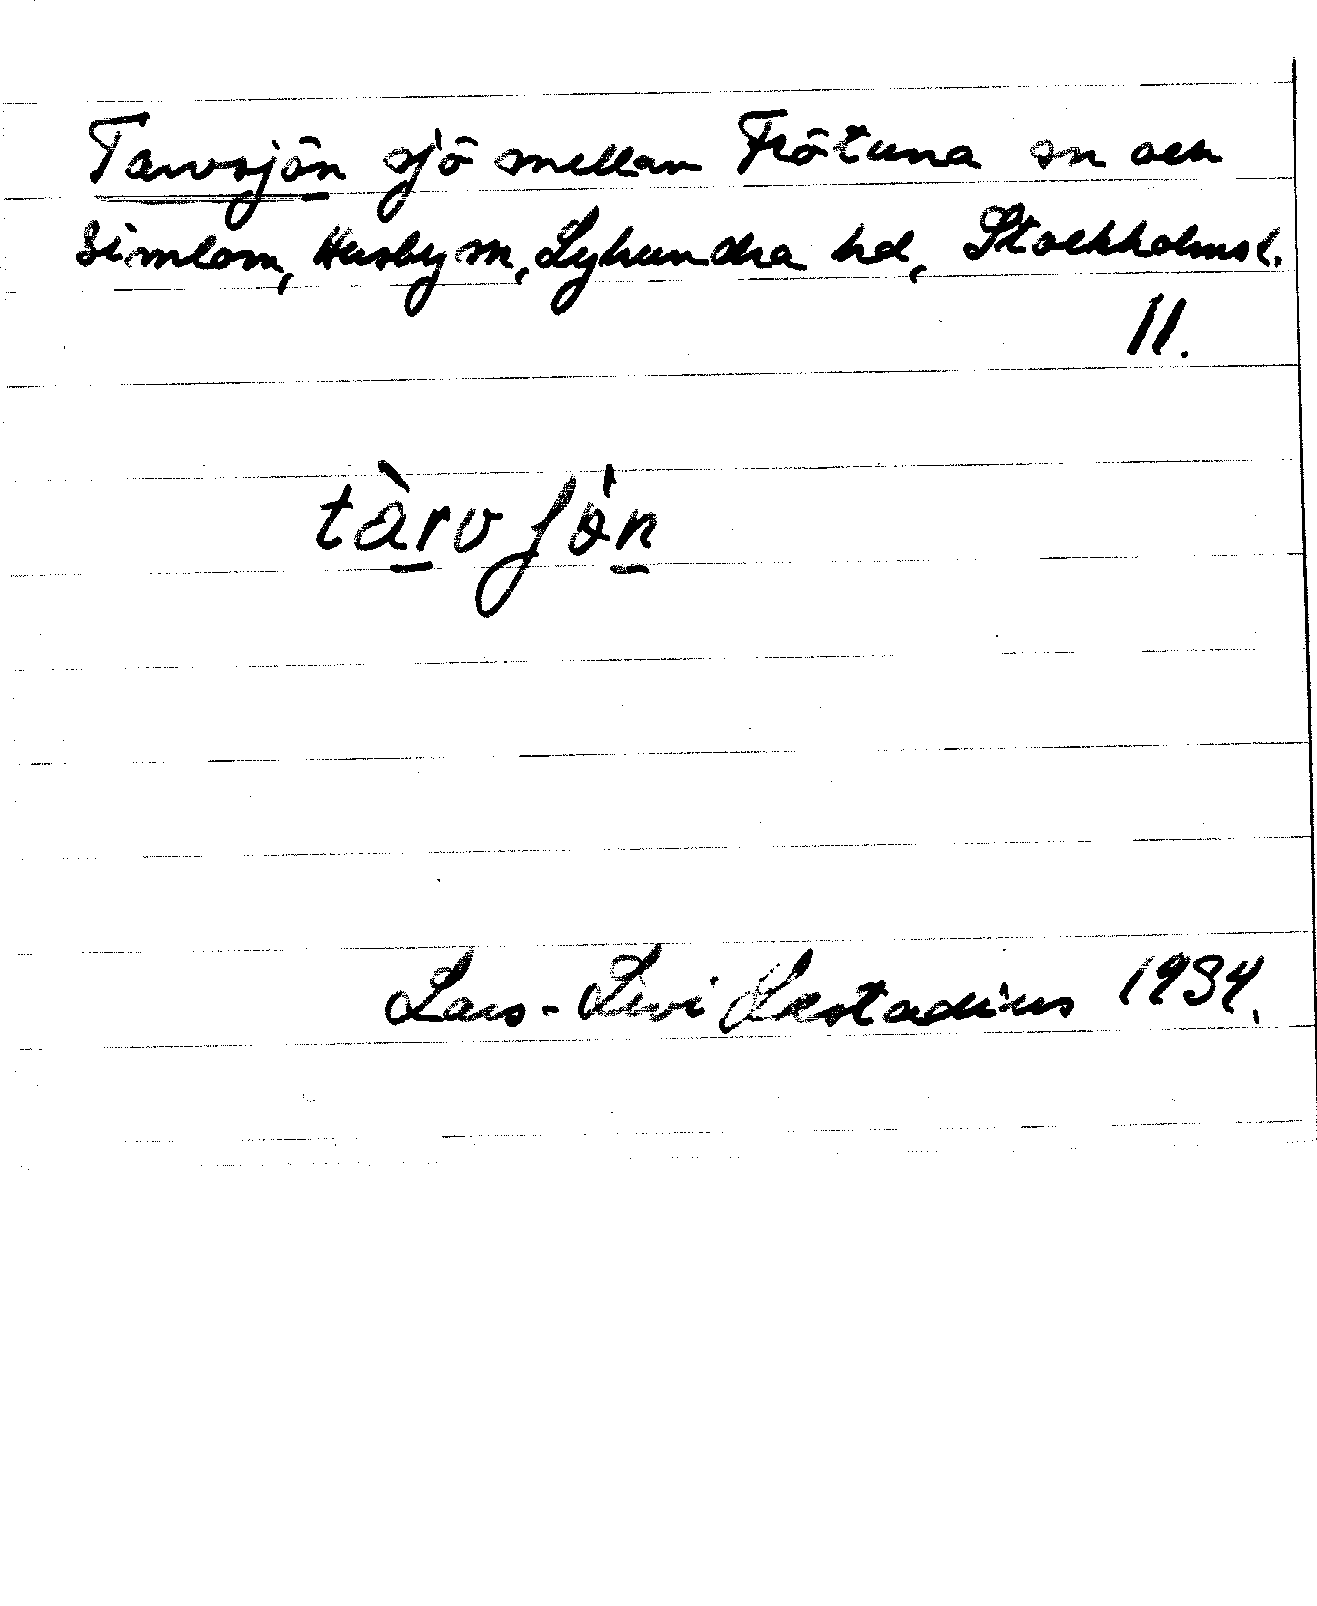 Tarvsjön sjö mellan Frötuna sn och
Simlom, Husby sn, Lyhundra hd, Stockholms l.
11.
tàrvʃö̀n
Lars-Levi Læstadius 1934.